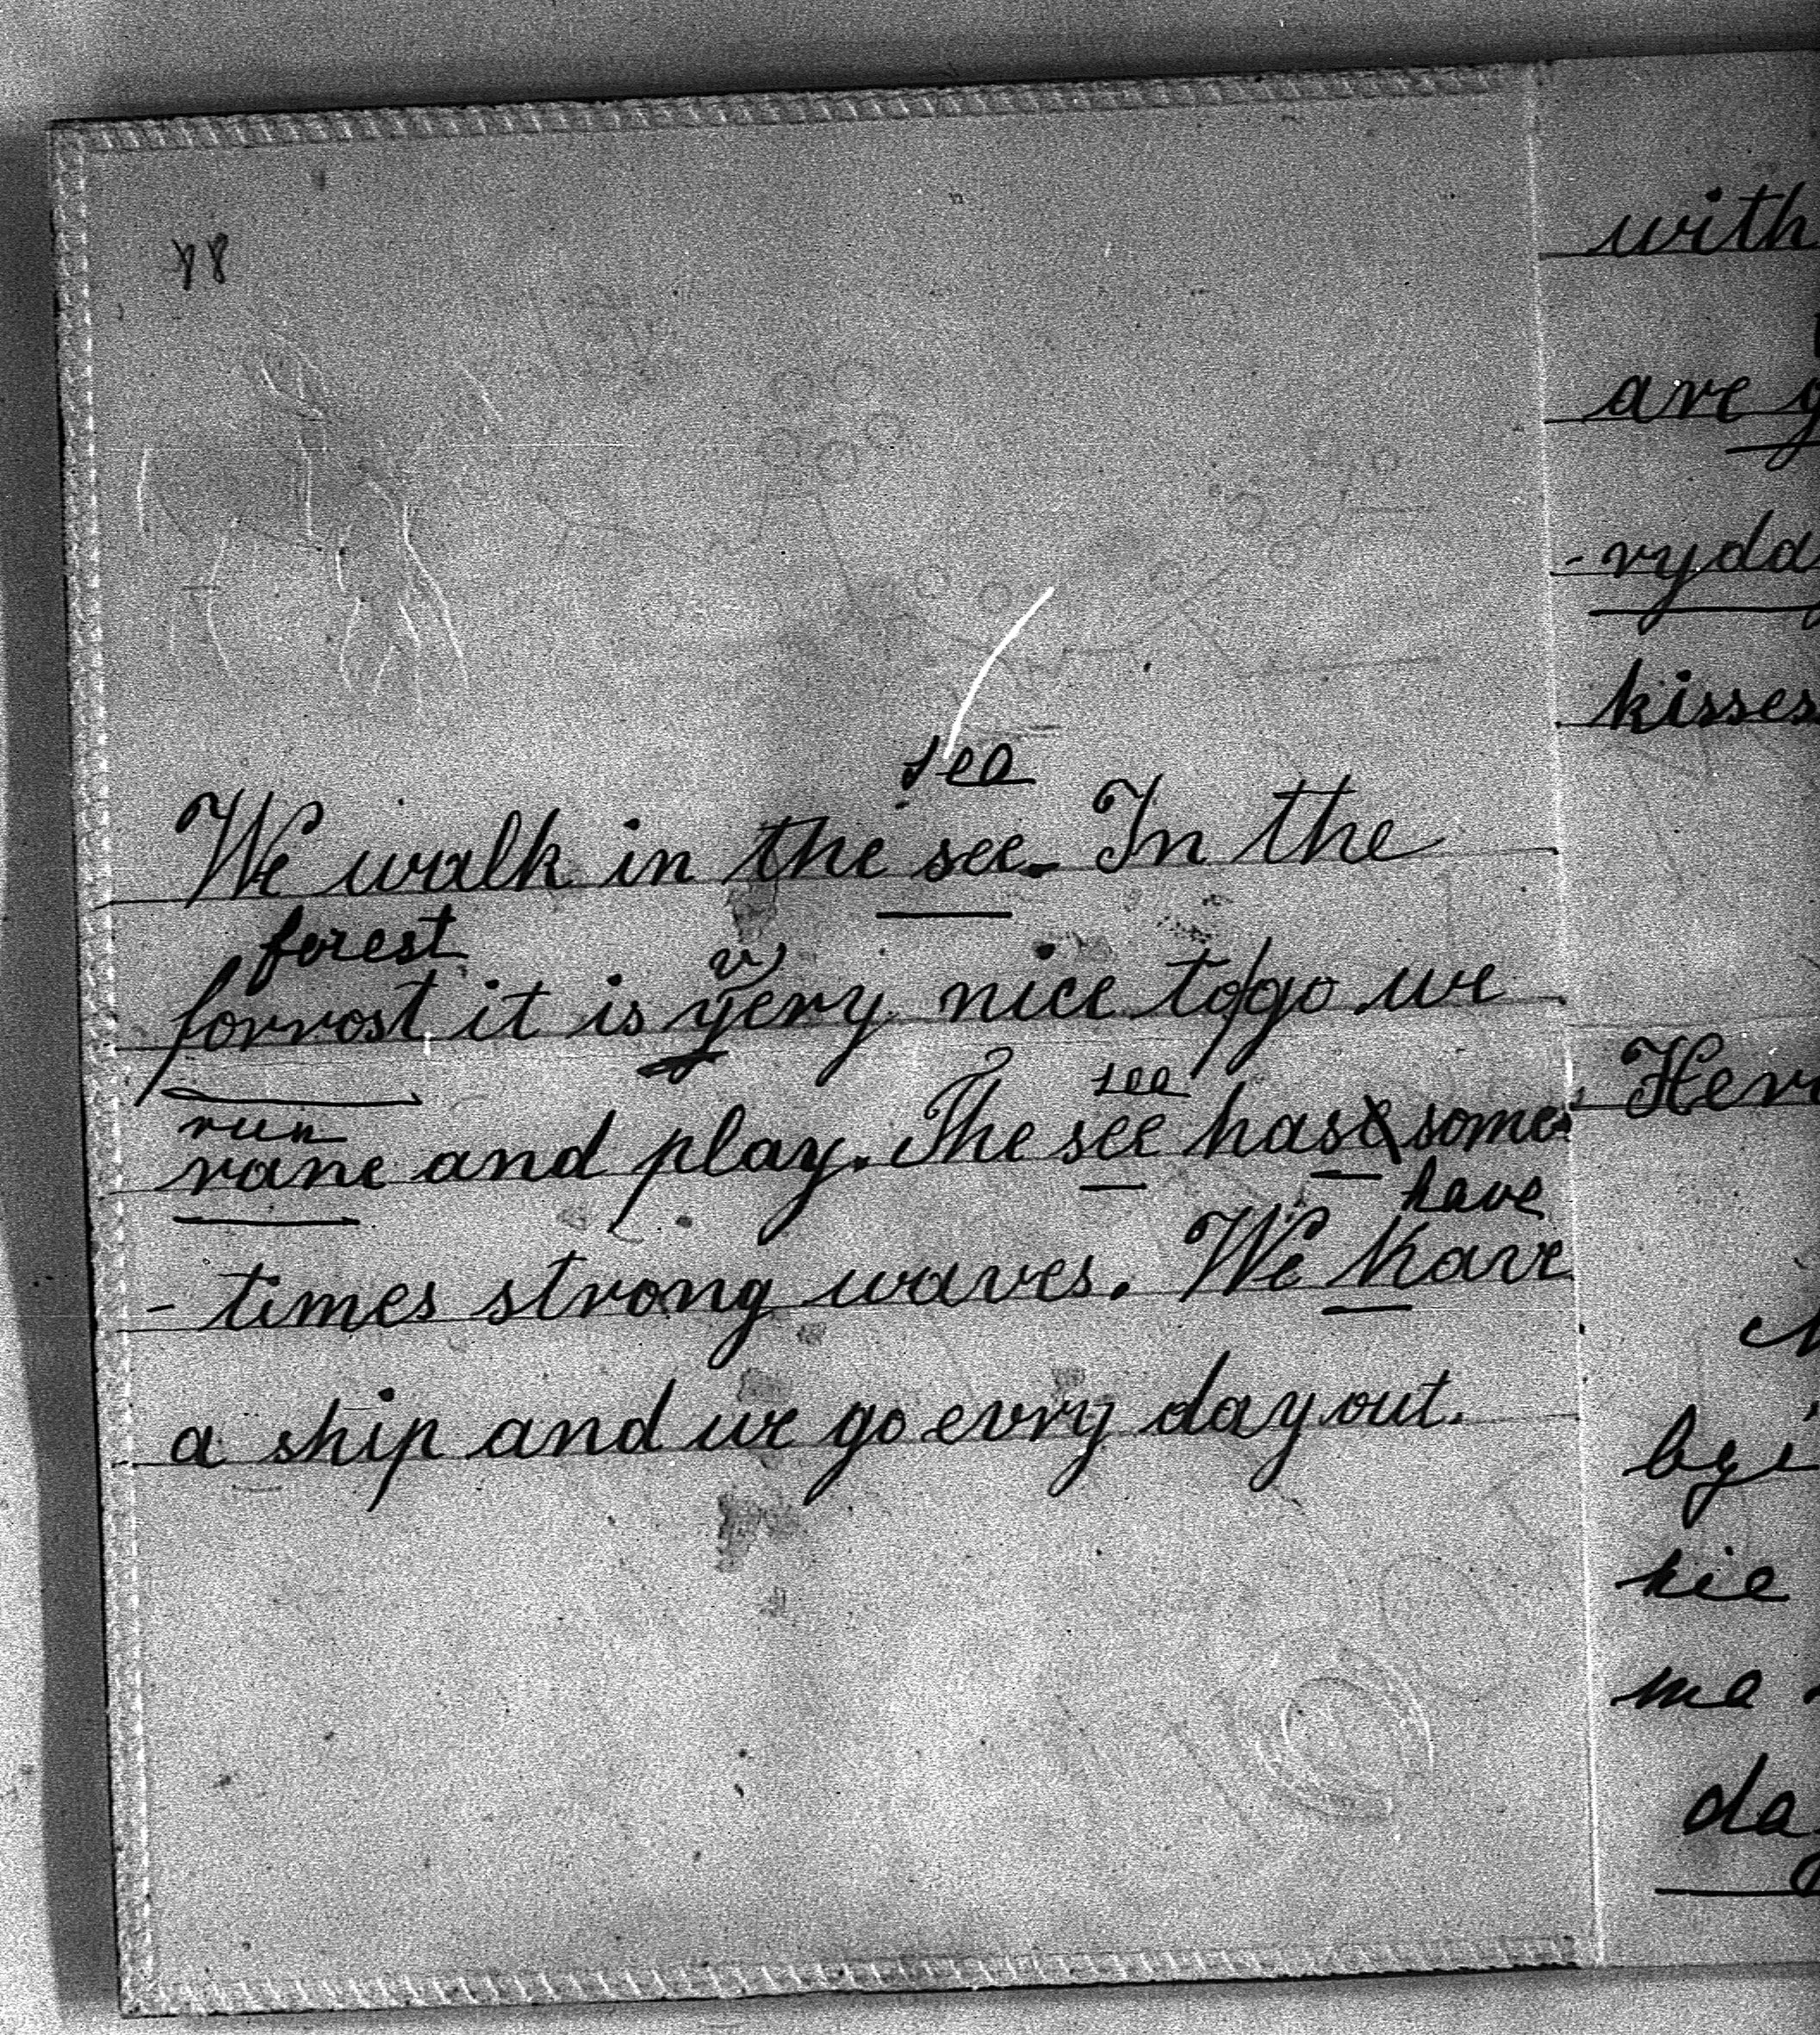 88
sea
We walk in the see. In the
forest
forrost it is yery nice to go we
v
run
rane and play. The see hase some-
sea
have
-times strong waves. We Have
a ship and we go evry day out.
with
are y
-rydd
kisses
Her
bye
kie
me
da